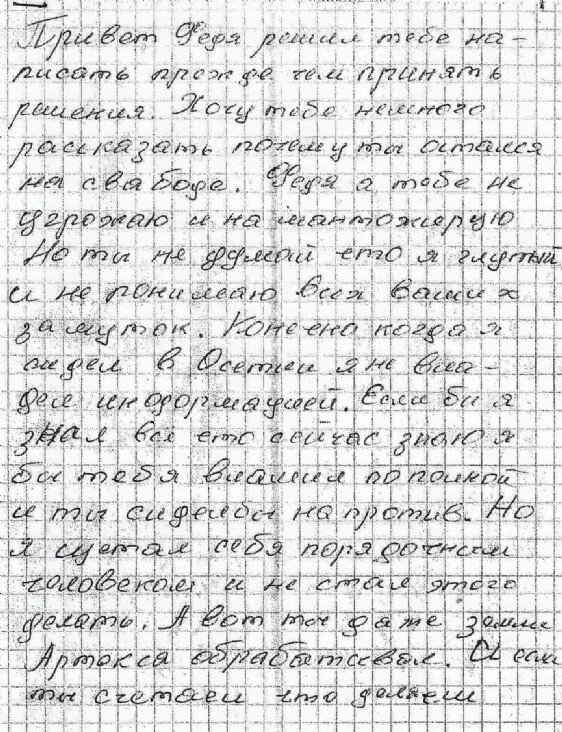 Привет Федя решил тебе на-
писать прежде чем принять
решения. Хочу тебе немного
рассказать почему ты остался
на свабоде. Федя я тебе не
угрожаю и на шантожирую
Но ты не думай што я глупый
и не понимаю всех ваших
замуток. Конечна когда я
сидел в Осетии я не вла-
дел информацией. Если бы я
знал всё што сейчас знаю я
бы тебя вламил по полной
и ты сиделбы на против. Но
я щетал себя порядочным
человеком и не стал этого
делать. А вот ты даже земли
обрабатывал. И если
ты считаеш что делаеш